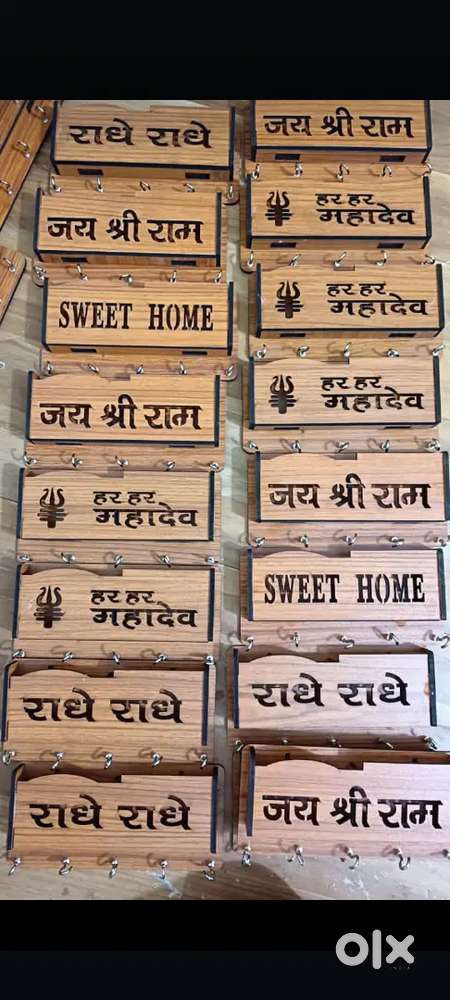 राधे राधे
जय श्री राम
SWEET HOME
जय श्री राम
हर हर
महादेव
हर हर
महादेव
राधे राधे
राधे राधे
जय श्री राम
हर हर
महादेव
हर हर
महादेव
हर हर
महादेव
जय श्री राम
SWEET HOME
राधे राधे
जय श्री राम
olx
INDIA